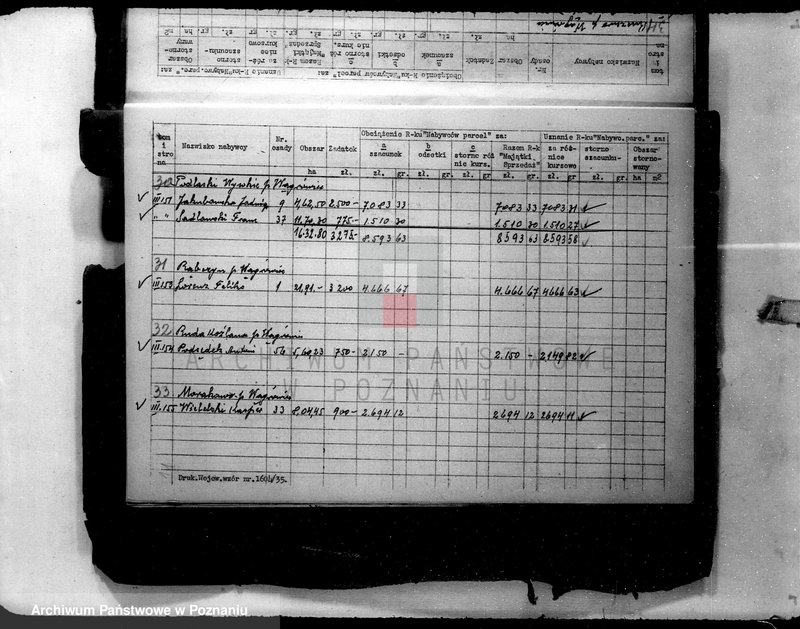 tom i stro na
Nazwisko nabywcy
Nr. osady
Obszar
Zadatek
Obciążenie R-ku "Nabywców parcel" za:
a szacunek
b odsetki
c storno róż nic kurs.
Razem R-k "Majątki, Sprzedaż"
Uznanie R-ku "Nabywc.parc." za:
za róż- nice kursowe
storno szacunku-
Obszar storno- wany
ha zł. zł. gr. zł. gr. zł. gr zł. gr. zł. gr. zł. gr. ha m2
30 Podlaski Wysokie p. Wągrowiec
III.151 Jakubowska Jadwiga 9 4,62,50 2.500- 7.083 33 7083 33 7083 31
" " Sadlowski Franc 37 11.70.30 775- 1.510 30 1.510 30 1.510 27
16.32.80 3.275- 8.593 63 8593 63 8593 58
31 p. Wągrowiec
III.153 Lorenz Feliks 1 21,91.- 3200 4.666 67 4.666 67 4666 63
32 Ruda Koźlana p. Wągrowiec
III.154 Antoni 56 5,60,23 750- 2150 - 2.150 - 2149 82
33 Morakowo p. Wągrowiec
III.155 Wielelski Kacper 33 8,04,45 900- 2.694 12 2694 12 2694 11
Druk.Wojew.wzór nr.160b/35.
ARCHIWUM PAŃSTWOWE
W POZNANIU
Archiwum Państwowe w Poznaniu